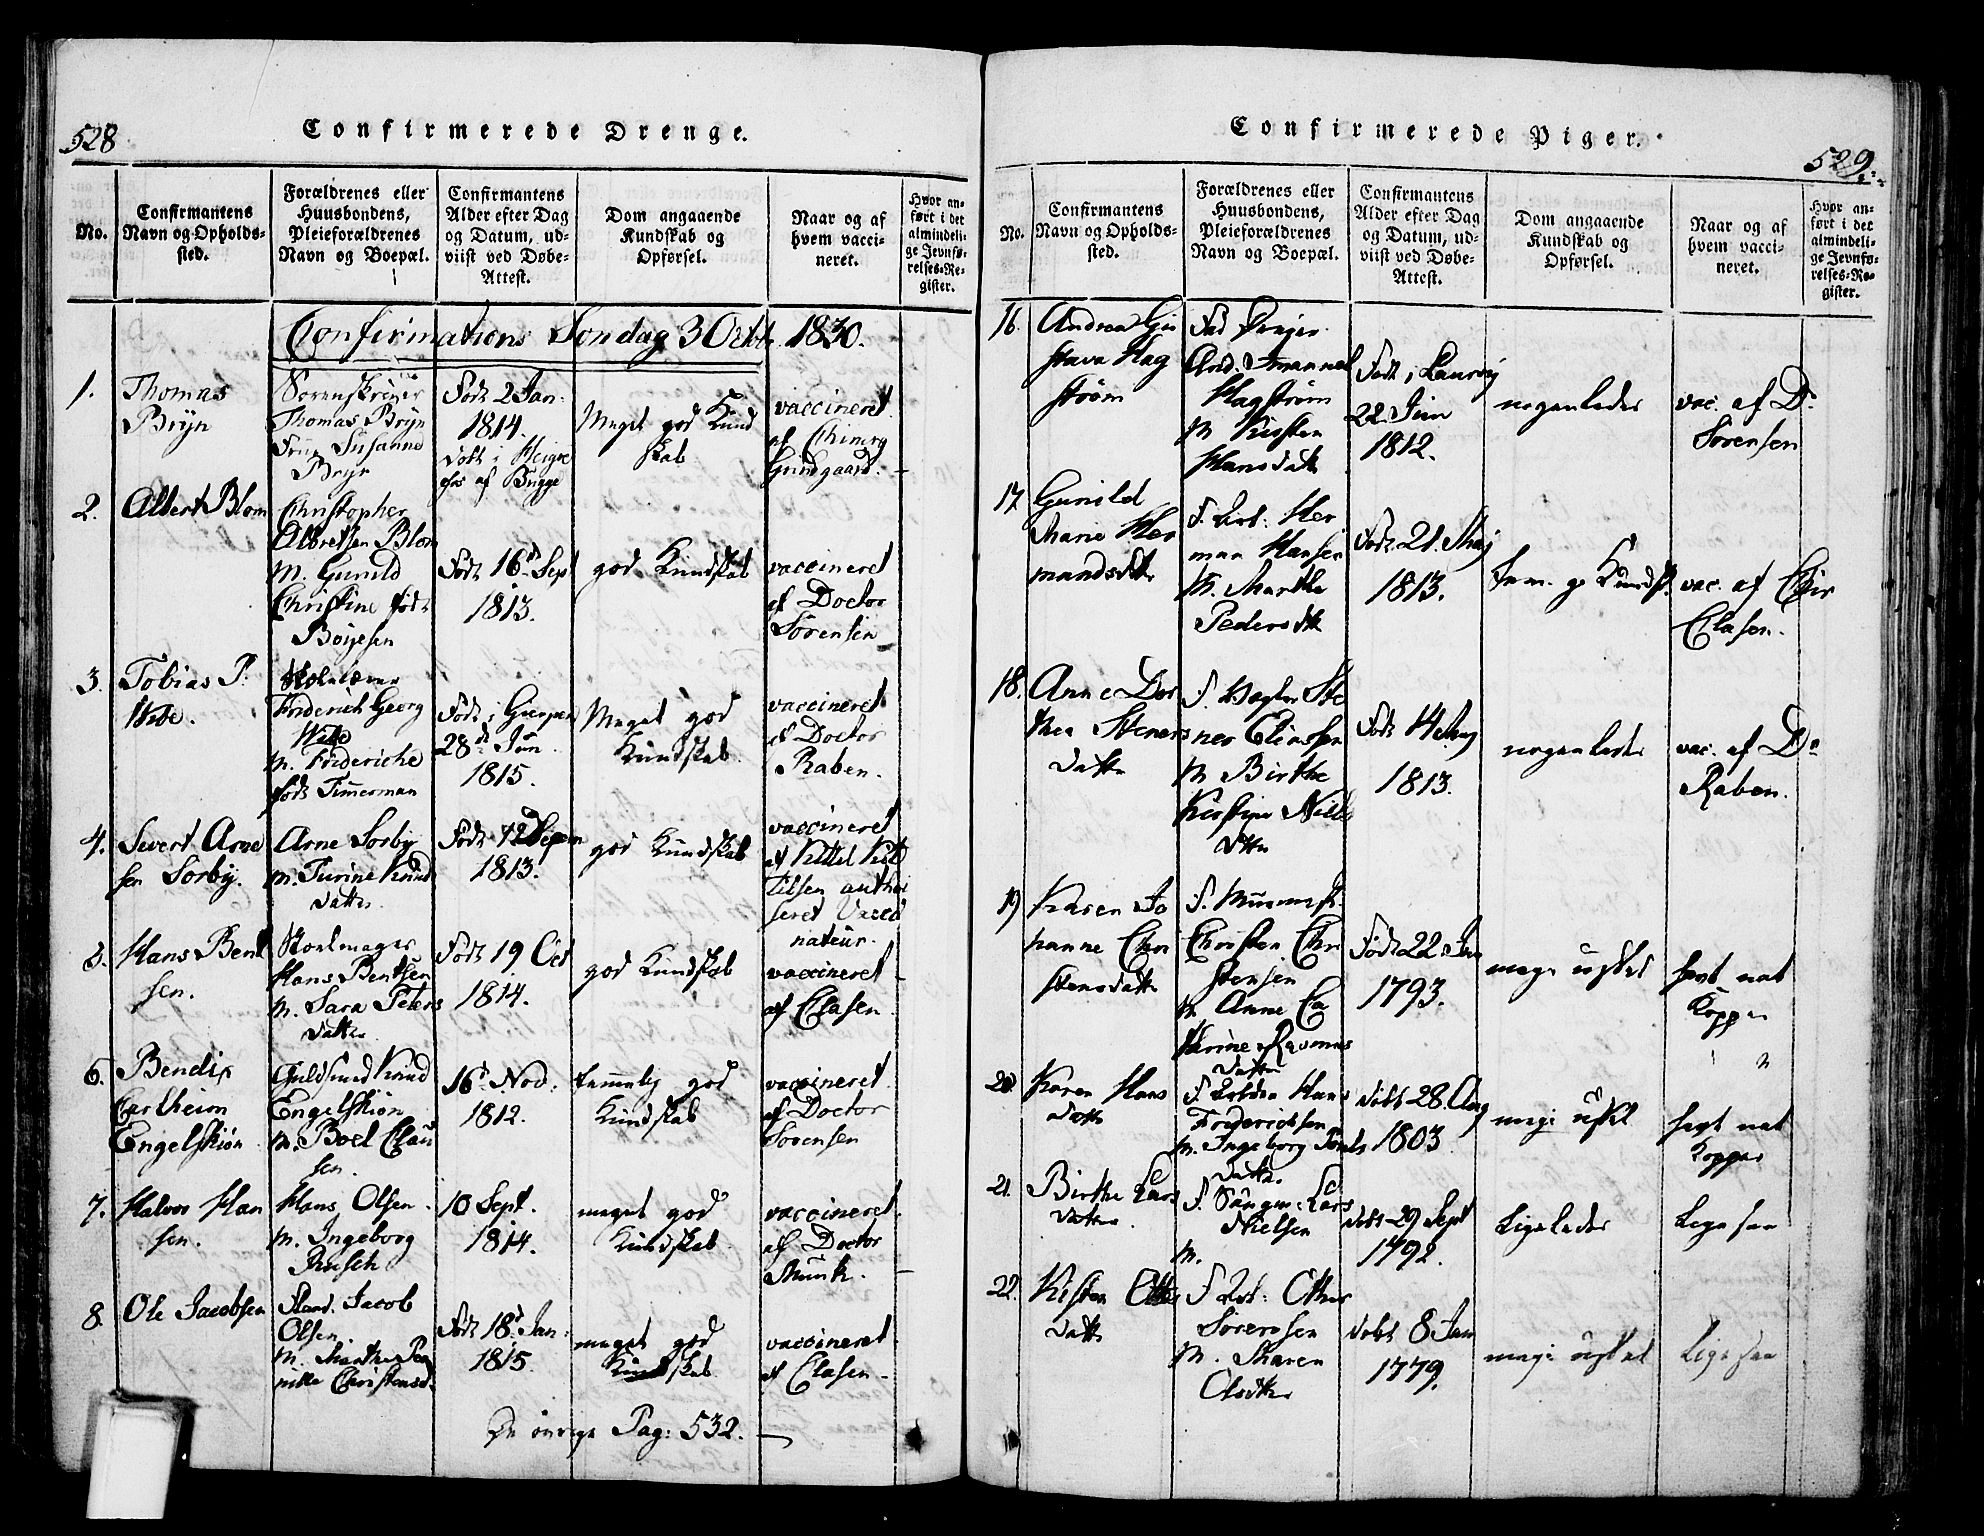 528
Confirmerede Drenge.
No.
Confirmantens
Navn og Opholds-
sted.
Forældrenes eller
Huusbondens,
Pleieforældrenes
Navn og Boepæl.
Confirmantens
Alder efter Dag
og Datum, ud-
viist ved Døbe-
Attest.
Dom angaaende
Kundskab og
Opførsel.
Naar og af
hvem vacci-
neret.
Hvor an-
ført i det
almindeli-
ge Jevnfø-
relses-Re-
gister.
Confirmations Søndag 3 Octb. 1830.
1.
Thomas
Bryn
Sorenskriver
Thomas Bryn
Frue Susanne
Bryn
Født 2 Jan.
1814.
døbt i
af Bugge
Meget god Kund
skab
vaccineret
af Chirurg
Gundgaard.
2.
Albert Blom
Christopher
Albretsen Blom
M. Gunild
Christine født
Boyesen
Født 16d Sept
1813.
god Kundskab
vaccineret
af Doctor
Sørensen
3.
Tobias P.
Wibe.
Friderich Georg
Wibe
M. Frideriche
født Timmerman
Født i Gierpen
28d Jun.
1815.
Meget god
Kundskab.
vaccineret
af Doctor
Raben.
4.
Sivert Arne
sen Sorby.
Arne Sorby
M. Turine Knud
datter
Født 12
1813.
god Kundskab
vaccineret
af Kittel Kit
tilsen autho
riseret Vacci
nateur.
5.
Hans Bent
sen.
Hans Bentsen
M. Sara Peters
datter
Født 19 Oct
1814.
god Kundskab
vaccineret
af Clasen
6.
Bendix
Carlheim
Engelskiøn
Guldsmed Knud
Engelskiøn
M. Boel Clau
sen.
16d Nov.
1812.
temmelig god
Kundskab
vaccineret
af Doctor
Sørensen
7.
Halvor Han
sen.
Hans Olsen.
M. Ingeborg
Rusch
10 Sept.
1814.
meget god
Kundskab.
vaccineret
af Doctor
Munk.
8.
Ole Jacobsen
Jacob
Olsen.
M. Marthe Per
nille Christensd.
Født 18d Jan.
1815.
meget god
Kundskab
vaccineret
af Clasen
De øvrige Pag: 532.
Confirmerede Piger.
529.
No.
Confirmantens
Navn og Opholds-
sted.
Forældrenes eller
Huusbondens,
Pleieforældrenes
Navn og Boepæl.
Confirmantens
Alder efter Dag
og Datum, ud-
viist ved Døbe-
Attest.
Dom angaaende
Kundskab og
Opførsel.
Naar og af
hvem vacci-
neret.
Hvor an-
ført i det
almindeli-
ge Jevnfø-
relses-Re-
gister.
16.
Andrea Gu
stava Hag
strøm
And. Imanuel
Hagstrøm
M Kirsten
Hansdatt
Født i Laurvig
22. Jun
1812.
nogenledes
vac. af Dr
Sørensen
17.
Gunild
Marie Her
mandsdtr
F. Arb: Her
man Hansen
M. Marthe
Pedersdtr
Født 21. Maj
1813.
Tem. g. Kundsk.
vac. af Chir
Clasen.
18.
Anne Dor
thea Steners
datter
F. Ste
ner Eliassen
M Birthe
Kirstine Niels
dtter
Født 14 Aug
1813.
nogenledes
vac. af Dr
Raben.
19
Karen Jo
hanne Chri
stensdatter
Christen Chri
stensen
M Anne Ca
thrine Rasmus
datter
Født 22 Jan
1793.
mege uskel
havt nat
Kopper
20.
Karen Hans
datter
Hans
Friderichsen
M. Ingeborg
datter
døbt 28. Aug
1803
havt nat
Kopper
21.
Birthe Lars
datter
Lars
Nielsen
M.
døbt 29 Sept
1792.
Ligeledes
Ligesaa
22.
Kirsten Otters
datter
F Arb: Otter
Sørensen
M. Maren
Olsdtr
døbt 8 Jan
1779.
Ligesaa